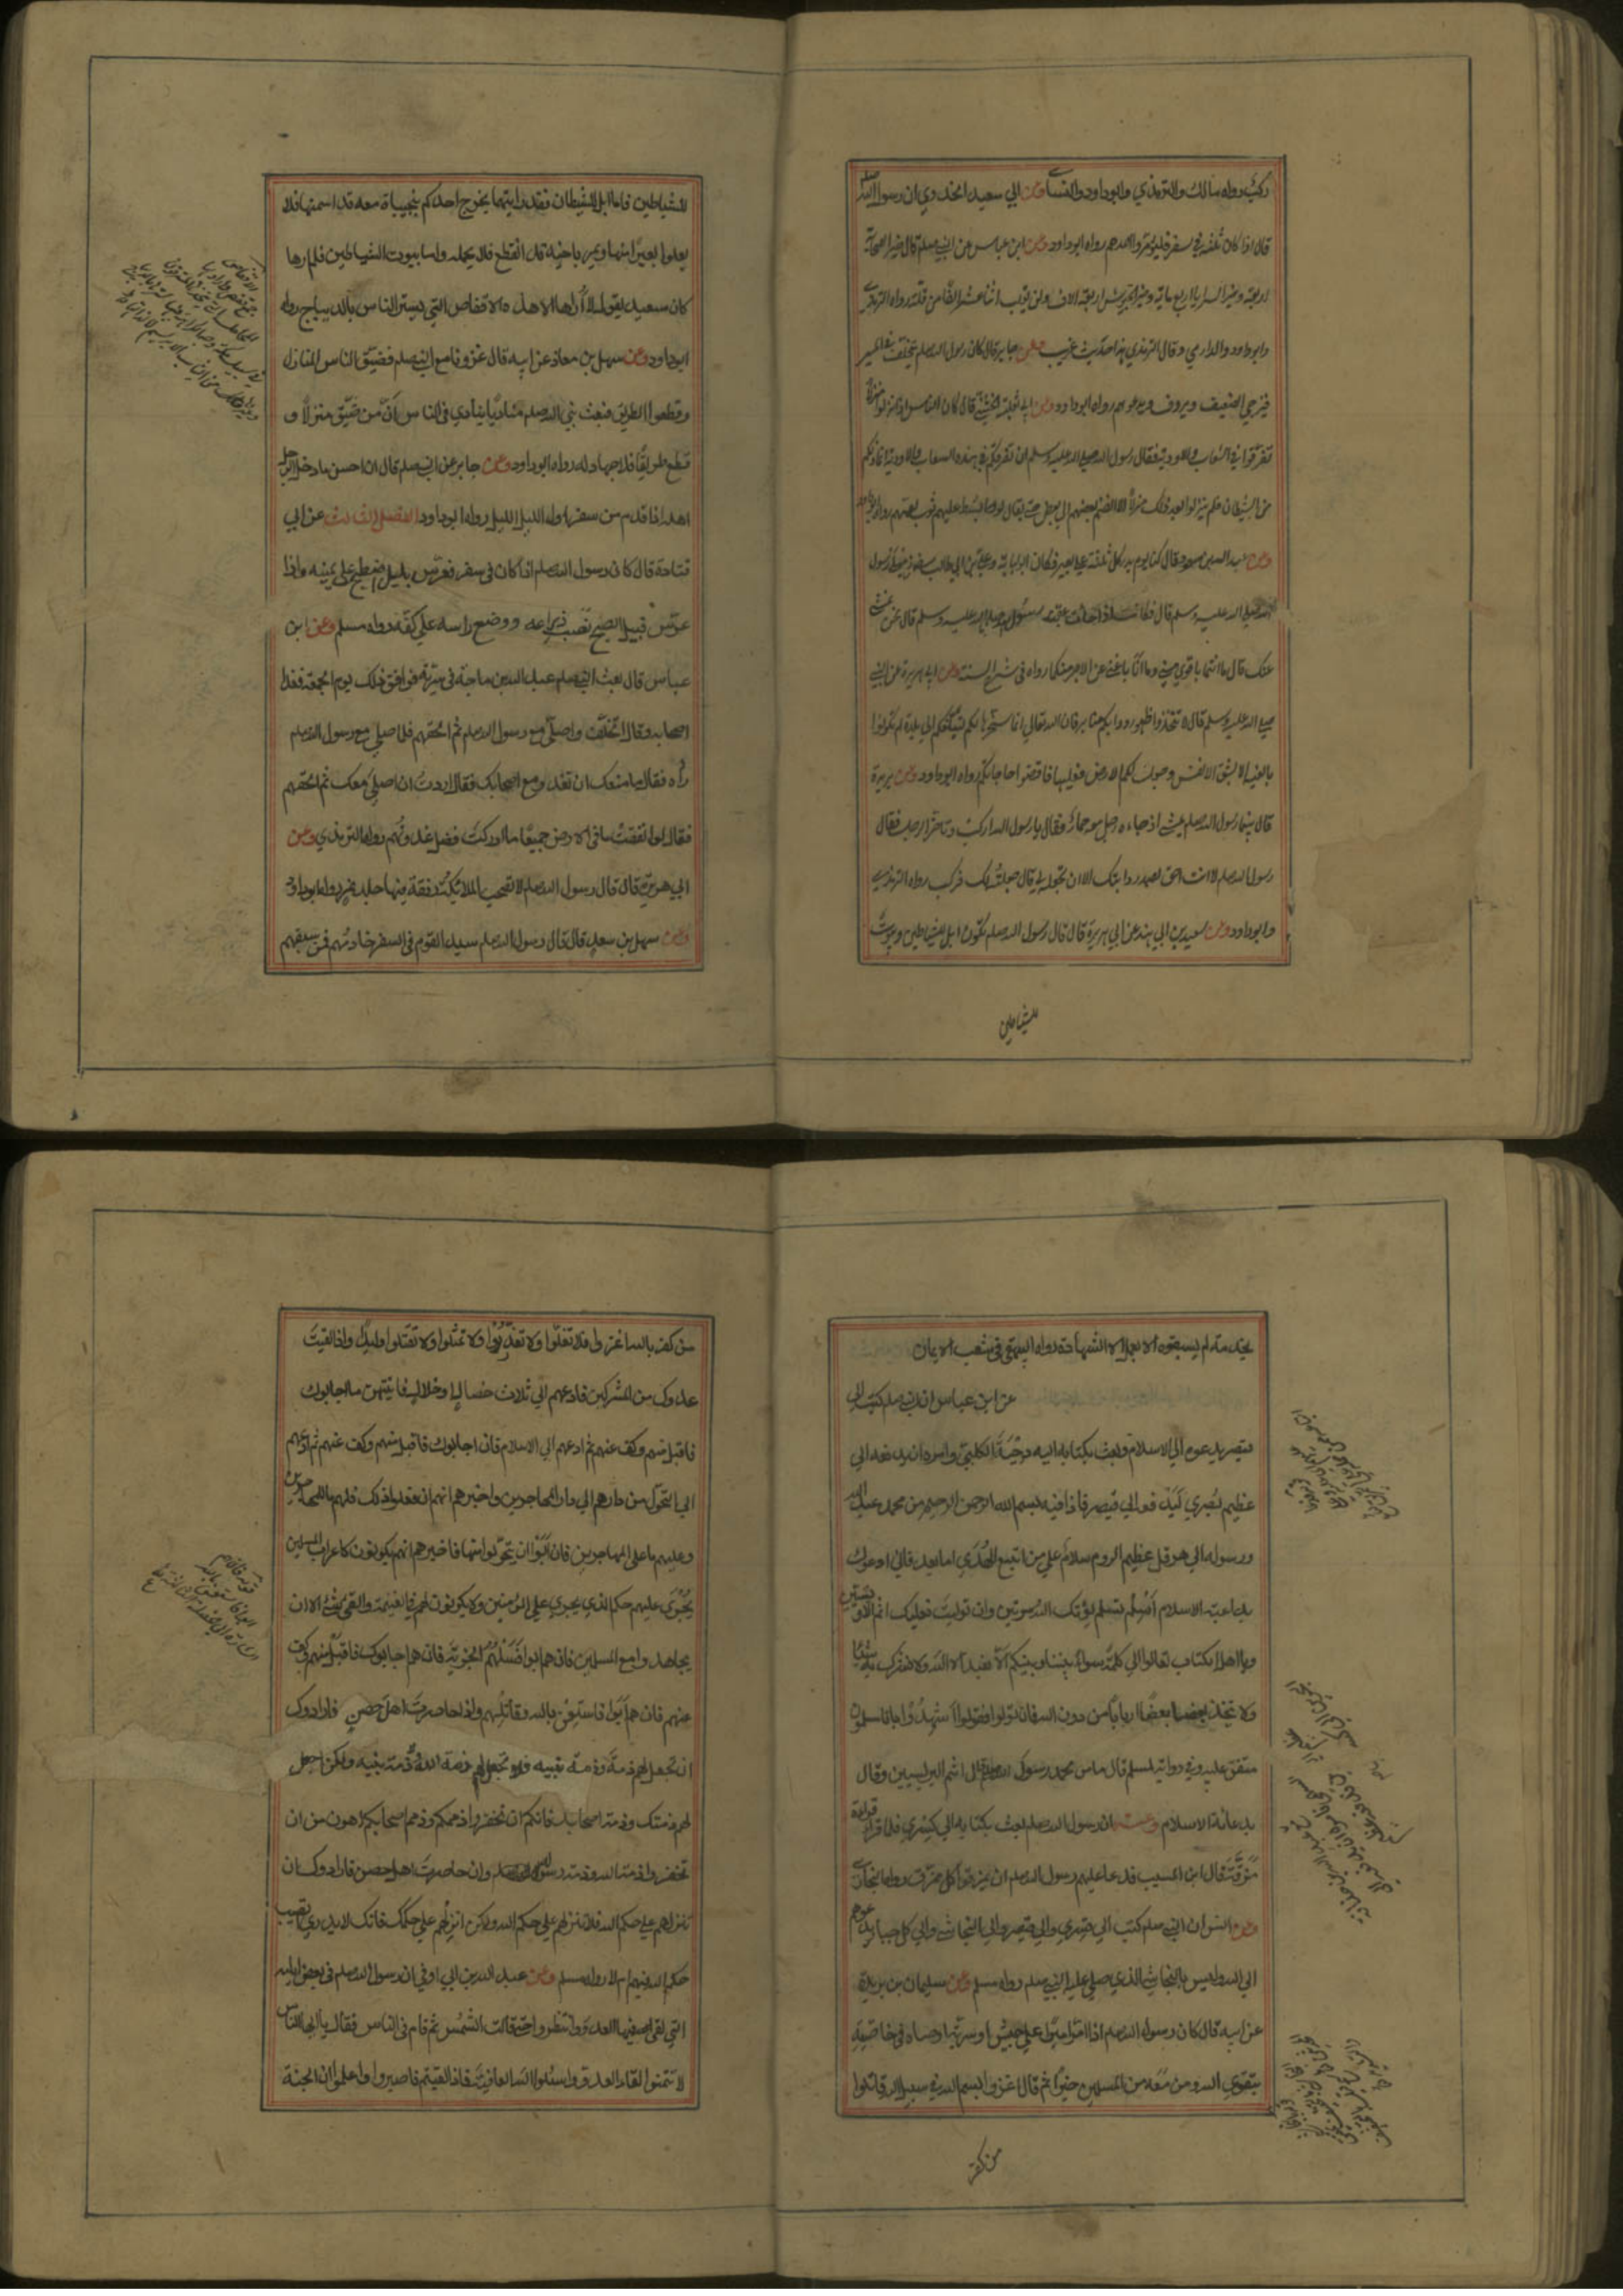 ركب رواه مالك والترمذي وابوداود والنسائي وعن ابي سعيد الخدري ان رسول الله صلعم
قال اذا كان ثلثة في سفر فليؤمروا احدهم رواه ابوداود وعن ابن عباس عن النبي صلعم قال خير الصحابة
اربعة وخير السرايا اربع ماية وخير الجيوش اربعة الاف ولن يغلب اثنا عشر الفا من قلة رواه الترمذي
وابوداود والدارمي وقال الترمذي هذا حديث غريب وعن جابر قال كان رسول الله صلعم يتخلف في المسير
فيزجي الضعيف ويردف ويدعو لهم رواه ابوداود وعن ابي ثعلبة الخشني قال كان الناس اذا نزلوا منزلا
تفرقوا في الشعاب والاودية فقال رسول الله صلى الله عليه وسلم ان تفرقكم في هذه الشعاب والاودية انما ذلكم
من الشيطان فلم ينزلوا بعد ذلك منزلا الا انضم بعضهم الى بعض حتى يقال لو بسط عليهم ثوب لعمهم رواه ابوداود
وعن عبد الله بن مسعود قال كنا يوم بدر كل ثلثة على بعير فكان ابو لبابة وعلي بن ابي طالب زميلي رسول
الله صلى الله عليه وسلم قال فكانت اذا جاءت عقبة رسول الله صلى الله عليه وسلم قال نحن نمشي
عنك قال ما انتما باقوى مني وما انا باغنى عن الاجر منكما رواه في شرح السنة وعن ابي هريرة عن النبي
صلى الله عليه وسلم قال لا تتخذوا ظهور دوابكم منابر فان الله تعالى انما سخرها لكم لتبلغكم الى بلد لم تكونوا
بالغيه الا بشق الانفس وجعل لكم الارض فعليها فاقضوا حاجاتكم رواه ابوداود وعن بريدة
قال بينما رسول الله صلعم يمشي اذ جاءه رجل معه حمار فقال يا رسول الله اركب وتاخر الرجل فقال
رسول الله صلعم لا انت احق بصدر دابتك الا ان تجعله لي قال جعلته لك فركب رواه الترمذي
وابوداود وعن سعيد بن ابي هند عن ابي هريرة قال قال رسول الله صلعم تكون ابل للشياطين وبيوت
للشياطين
للشياطين فاما ابل الشيطان فقد رايتها يخرج احدكم بنجيبات معه قد اسمنها فلا
يعلوا بعيرا منها ويمر باخيه قد انقطع فلا يحمله واما بيوت الشياطين فلم ارها
كان سعيد يقول لا اراها الا هذه الاقفاص التي يستر الناس بالديباج رواه
ابوداود وعن سهل بن معاذ عن ابيه قال غزونا مع النبي صلعم فضيق الناس المنازل
وقطعوا الطريق فبعث نبي الله صلعم مناديا ينادي في الناس ان من ضيق منزلا و
قطع طريقا فلا جهاد له رواه ابوداود وعن جابر عن النبي صلعم قال ان احسن ما دخل الرجل
اهله اذا قدم من سفر اول الليل رواه ابوداود الفصل الثالث عن ابي
قتادة قال كان رسول الله صلعم اذا كان في سفر فعرس بليل اضطجع على يمينه واذا
عرس قبيل الصبح نصب ذراعه ووضع راسه على كفه رواه مسلم وعن ابن
عباس قال بعث النبي صلعم عبد الله بن رواحة في سرية فوافق ذلك يوم الجمعة فغدا
اصحابه وقال اتخلف واصلي مع رسول الله صلعم ثم الحقهم فلما صلى مع رسول الله صلعم
راه فقال ما منعك ان تغدو مع اصحابك فقال اردت ان اصلي معك ثم الحقهم
فقال لو انفقت ما في الارض جميعا ما ادركت فضل غدوتهم رواه الترمذي وعن
ابي هريرة قال قال رسول الله صلعم لا تصحب الملائكة رفقة فيها جلد نمر رواه ابوداود
وعن سهل بن سعد قال قال رسول الله صلعم سيد القوم في السفر خادمهم فمن سبقهم
بخدمة لم يسبقوه الا بعمل الا الشهادة رواه البيهقي في شعب الايمان
عن ابن عباس ان النبي صلعم كتب الى
قيصر يدعوه الى الاسلام وبعث بكتابه اليه دحية الكلبي وامره ان يدفعه الى
عظيم بصرى ليدفعه الى قيصر فاذا فيه بسم الله الرحمن الرحيم من محمد عبد الله
ورسوله الى هرقل عظيم الروم سلام على من اتبع الهدى اما بعد فاني ادعوك
بداعية الاسلام اسلم تسلم يؤتك الله اجرك مرتين وان توليت فعليك اثم الاريسيين
ويا اهل الكتاب تعالوا الى كلمة سواء بيننا وبينكم الا نعبد الا الله ولا نشرك به شيئا
ولا يتخذ بعضنا بعضا اربابا من دون الله فان تولوا فقولوا اشهدوا بانا مسلمون
متفق عليه وفي رواية لمسلم قال من محمد رسول الله وقال اثم اليريسيين وقال
بدعاية الاسلام وعنه ان رسول الله صلعم بعث بكتابه الى كسرى فلما قراه
مزقه قال ابن المسيب فدعا عليهم رسول الله صلعم ان يمزقوا كل ممزق رواه البخاري
وعن انس ان النبي صلعم كتب الى كسرى والى قيصر والى النجاشي والى كل جبار يدعوهم
الى الله وليس بالنجاشي الذي صلى عليه النبي صلعم رواه مسلم وعن سليمان بن بريدة
عن ابيه قال كان رسول الله صلعم اذا امر اميرا على جيش او سرية اوصاه في خاصته
بتقوى الله ومن معه من المسلمين خيرا ثم قال اغزوا بسم الله في سبيل الله قاتلوا
من كفر
من كفر بالله اغزوا فلا تغلوا ولا تغدروا ولا تمثلوا ولا تقتلوا وليدا واذا لقيت
عدوك من المشركين فادعهم الى ثلاث خصال او خلال فايتهن ما اجابوك
فاقبل منهم وكف عنهم ثم ادعهم الى الاسلام فان اجابوك فاقبل منهم وكف عنهم ثم ادعهم
الى التحول من دارهم الى دار المهاجرين واخبرهم انهم ان فعلوا ذلك فلهم ما للمهاجرين
وعليهم ما على المهاجرين فان ابوا ان يتحولوا منها فاخبرهم انهم يكونون كاعراب المسلمين
يجرى عليهم حكم الله الذي يجري على المؤمنين ولا يكون لهم في الغنيمة والفيء شيء الا ان
يجاهدوا مع المسلمين فان هم ابوا فسلهم الجزية فان هم اجابوك فاقبل منهم وكف
عنهم فان هم ابوا فاستعن بالله وقاتلهم واذا حاصرت اهل حصن فارادوك
ان تجعل لهم ذمة الله وذمة نبيه فلا تجعل لهم ذمة الله ولا ذمة نبيه ولكن اجعل
لهم ذمتك وذمة اصحابك فانكم ان تخفروا ذممكم وذمم اصحابكم اهون من ان
تخفروا ذمة الله وذمة رسوله وان حاصرت اهل حصن فارادوك ان
تنزلهم على حكم الله فلا تنزلهم على حكم الله ولكن انزلهم على حكمك فانك لا تدري اتصيب
حكم الله فيهم ام لا رواه مسلم وعن عبد الله بن ابي اوفى ان رسول الله صلعم في بعض ايامه
التي لقي فيها العدو انتظر حتى مالت الشمس ثم قام في الناس فقال يا ايها الناس
لا تتمنوا لقاء العدو واسئلوا الله العافية فاذا لقيتم فاصبروا واعلموا ان الجنة